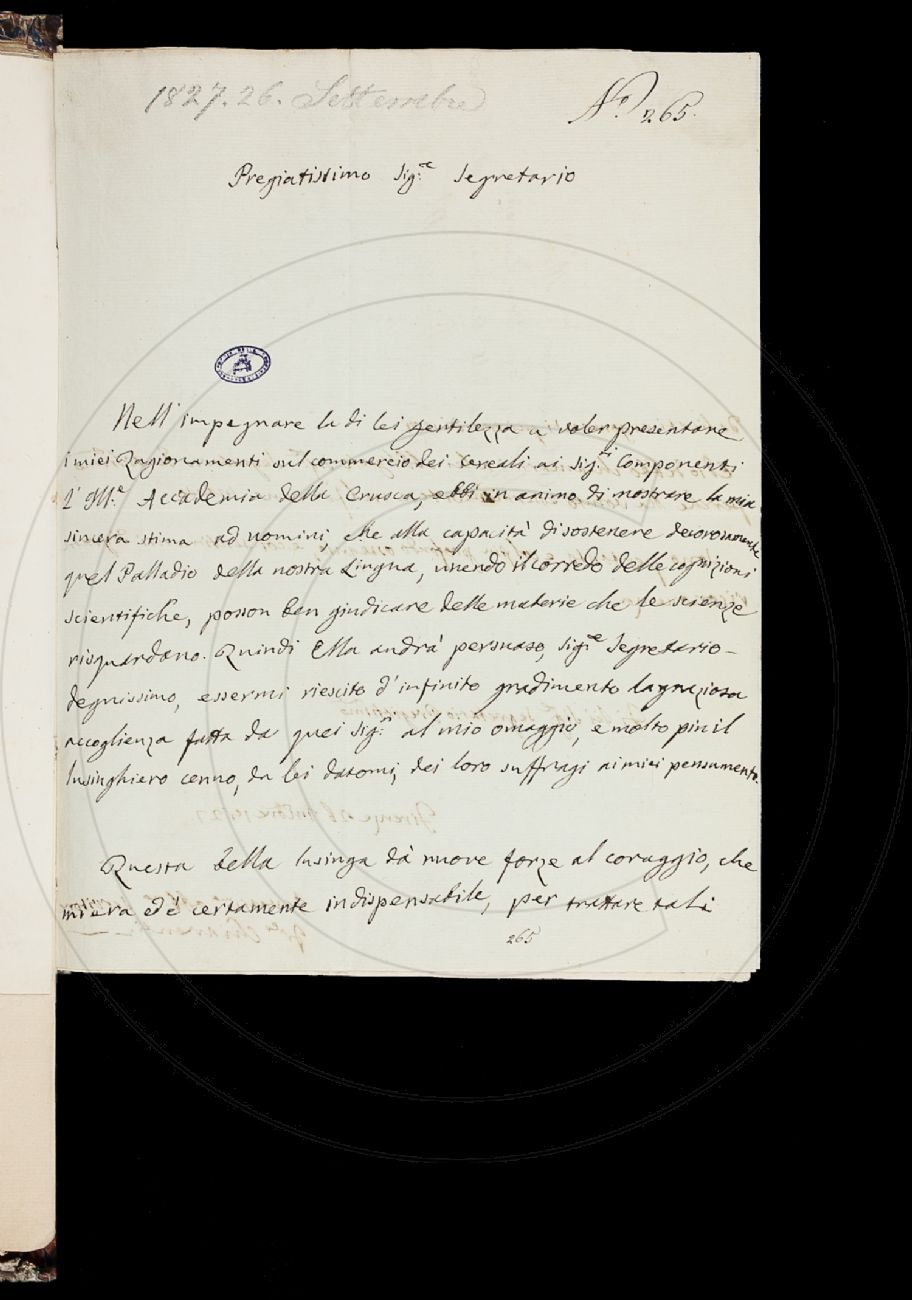 1827. 26. Settembre
N.º 265.
Pregiatissimo Sig.e Segretario
Nell' impegnare la di lei gentilezza a voler presentare
i miei Ragionamenti sul commercio dei cereali ai Sig.ri Componenti
l' Ill.e Accademia della Crusca, ebbi in animo di mostrare la mia
sincera stima ad uomini, che alla capacità di sostenere decorosamente
quel Palladio della nostra Lingua, unendo il corredo delle cognizioni
scientifiche, posson ben giudicare delle materie che le scienze
risguardano. Quindi Ella andrà persuaso, Sig.e Segretario
degnissimo, essermi riescito d' infinito gradimento la graziosa
accoglienza fatta da quei Sig.ri al mio omaggio, e molto più il
lusinghiero cenno, da lei datomi, dei loro suffragi ai miei pensamenti.
Questa bella lusinga dà nuove forze al coraggio, che
mi era ed è certamente indispensabile, per trattare tali
265